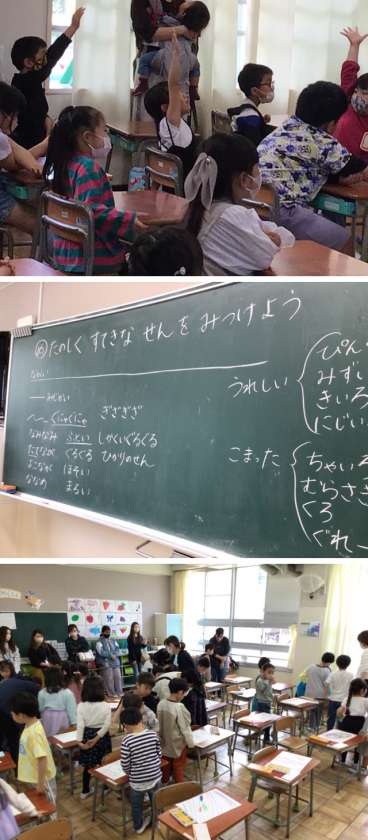 め たのしく すてきな せんを みつけよう
ながい
みじかい
くにゃくにゃ ぎざぎざ
なみなみ ふとい しかくいぐるぐる
たてながく ぐるぐる ひかりのせん
よこながく ほそい
ななめ まるい
うれしい
ぴん
みずい
きいろ
にじい
こまった
ちゃいろ
むらさき
くろ
ぐれー